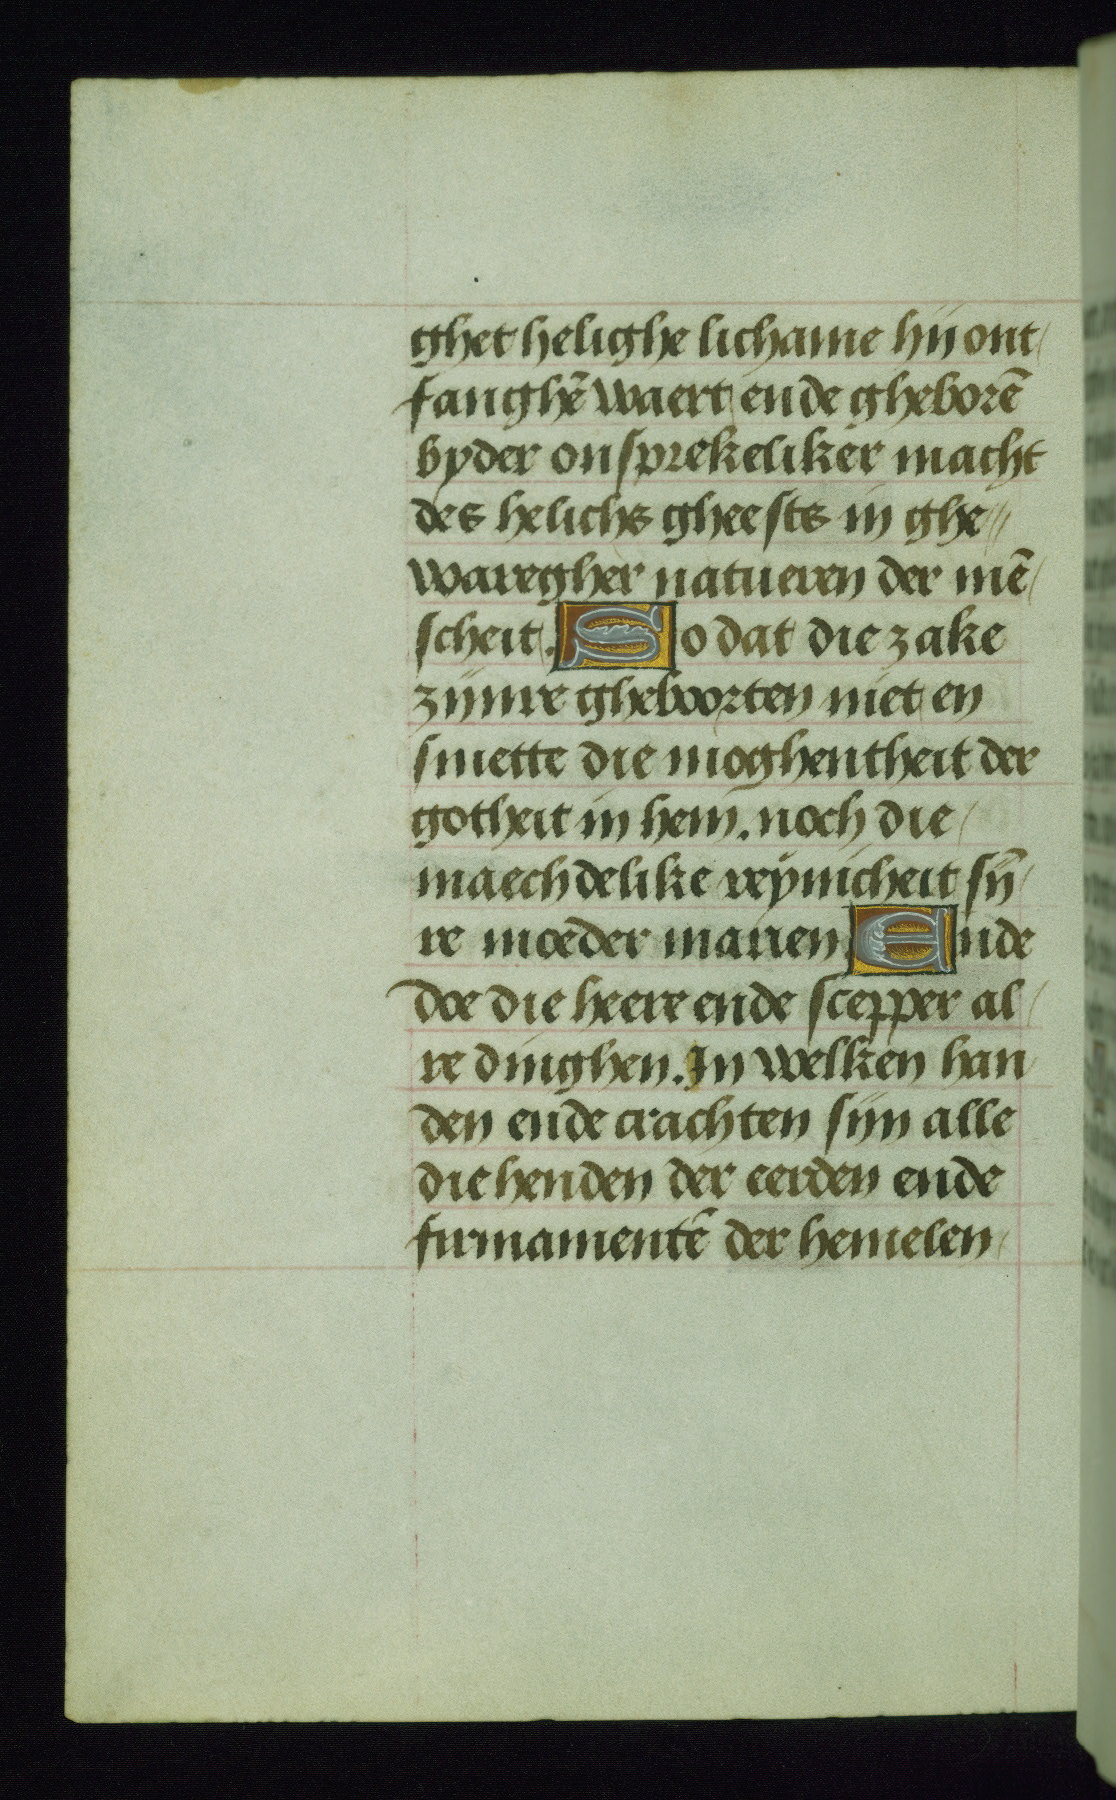 ghet helighe lichame hij ont/
fanghē waert ende gheborē
byder onsprekeliker macht
des helichs gheests in ghe//
waregher natueren der mē/
scheit. So dat die zake
zijnre gheboorten niet en
smette die moghentheit der
gotheit in hem. noch die/
maechdelike reynicheit sij̄/
re moeder marien. Ende
doe die heere ende scepper al/
re dinghen. In welken han/
den ende crachten sijn alle
die henden der eerden ende
firmamentē der hemelen/